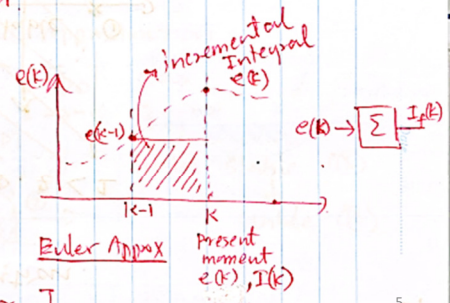 incremental
Integral
e(k)
e(k)
e(k-1)
e(k) → Σ I_f(k)
k-1
k
Euler Approx
present
moment
e(k), I(k)
I
5